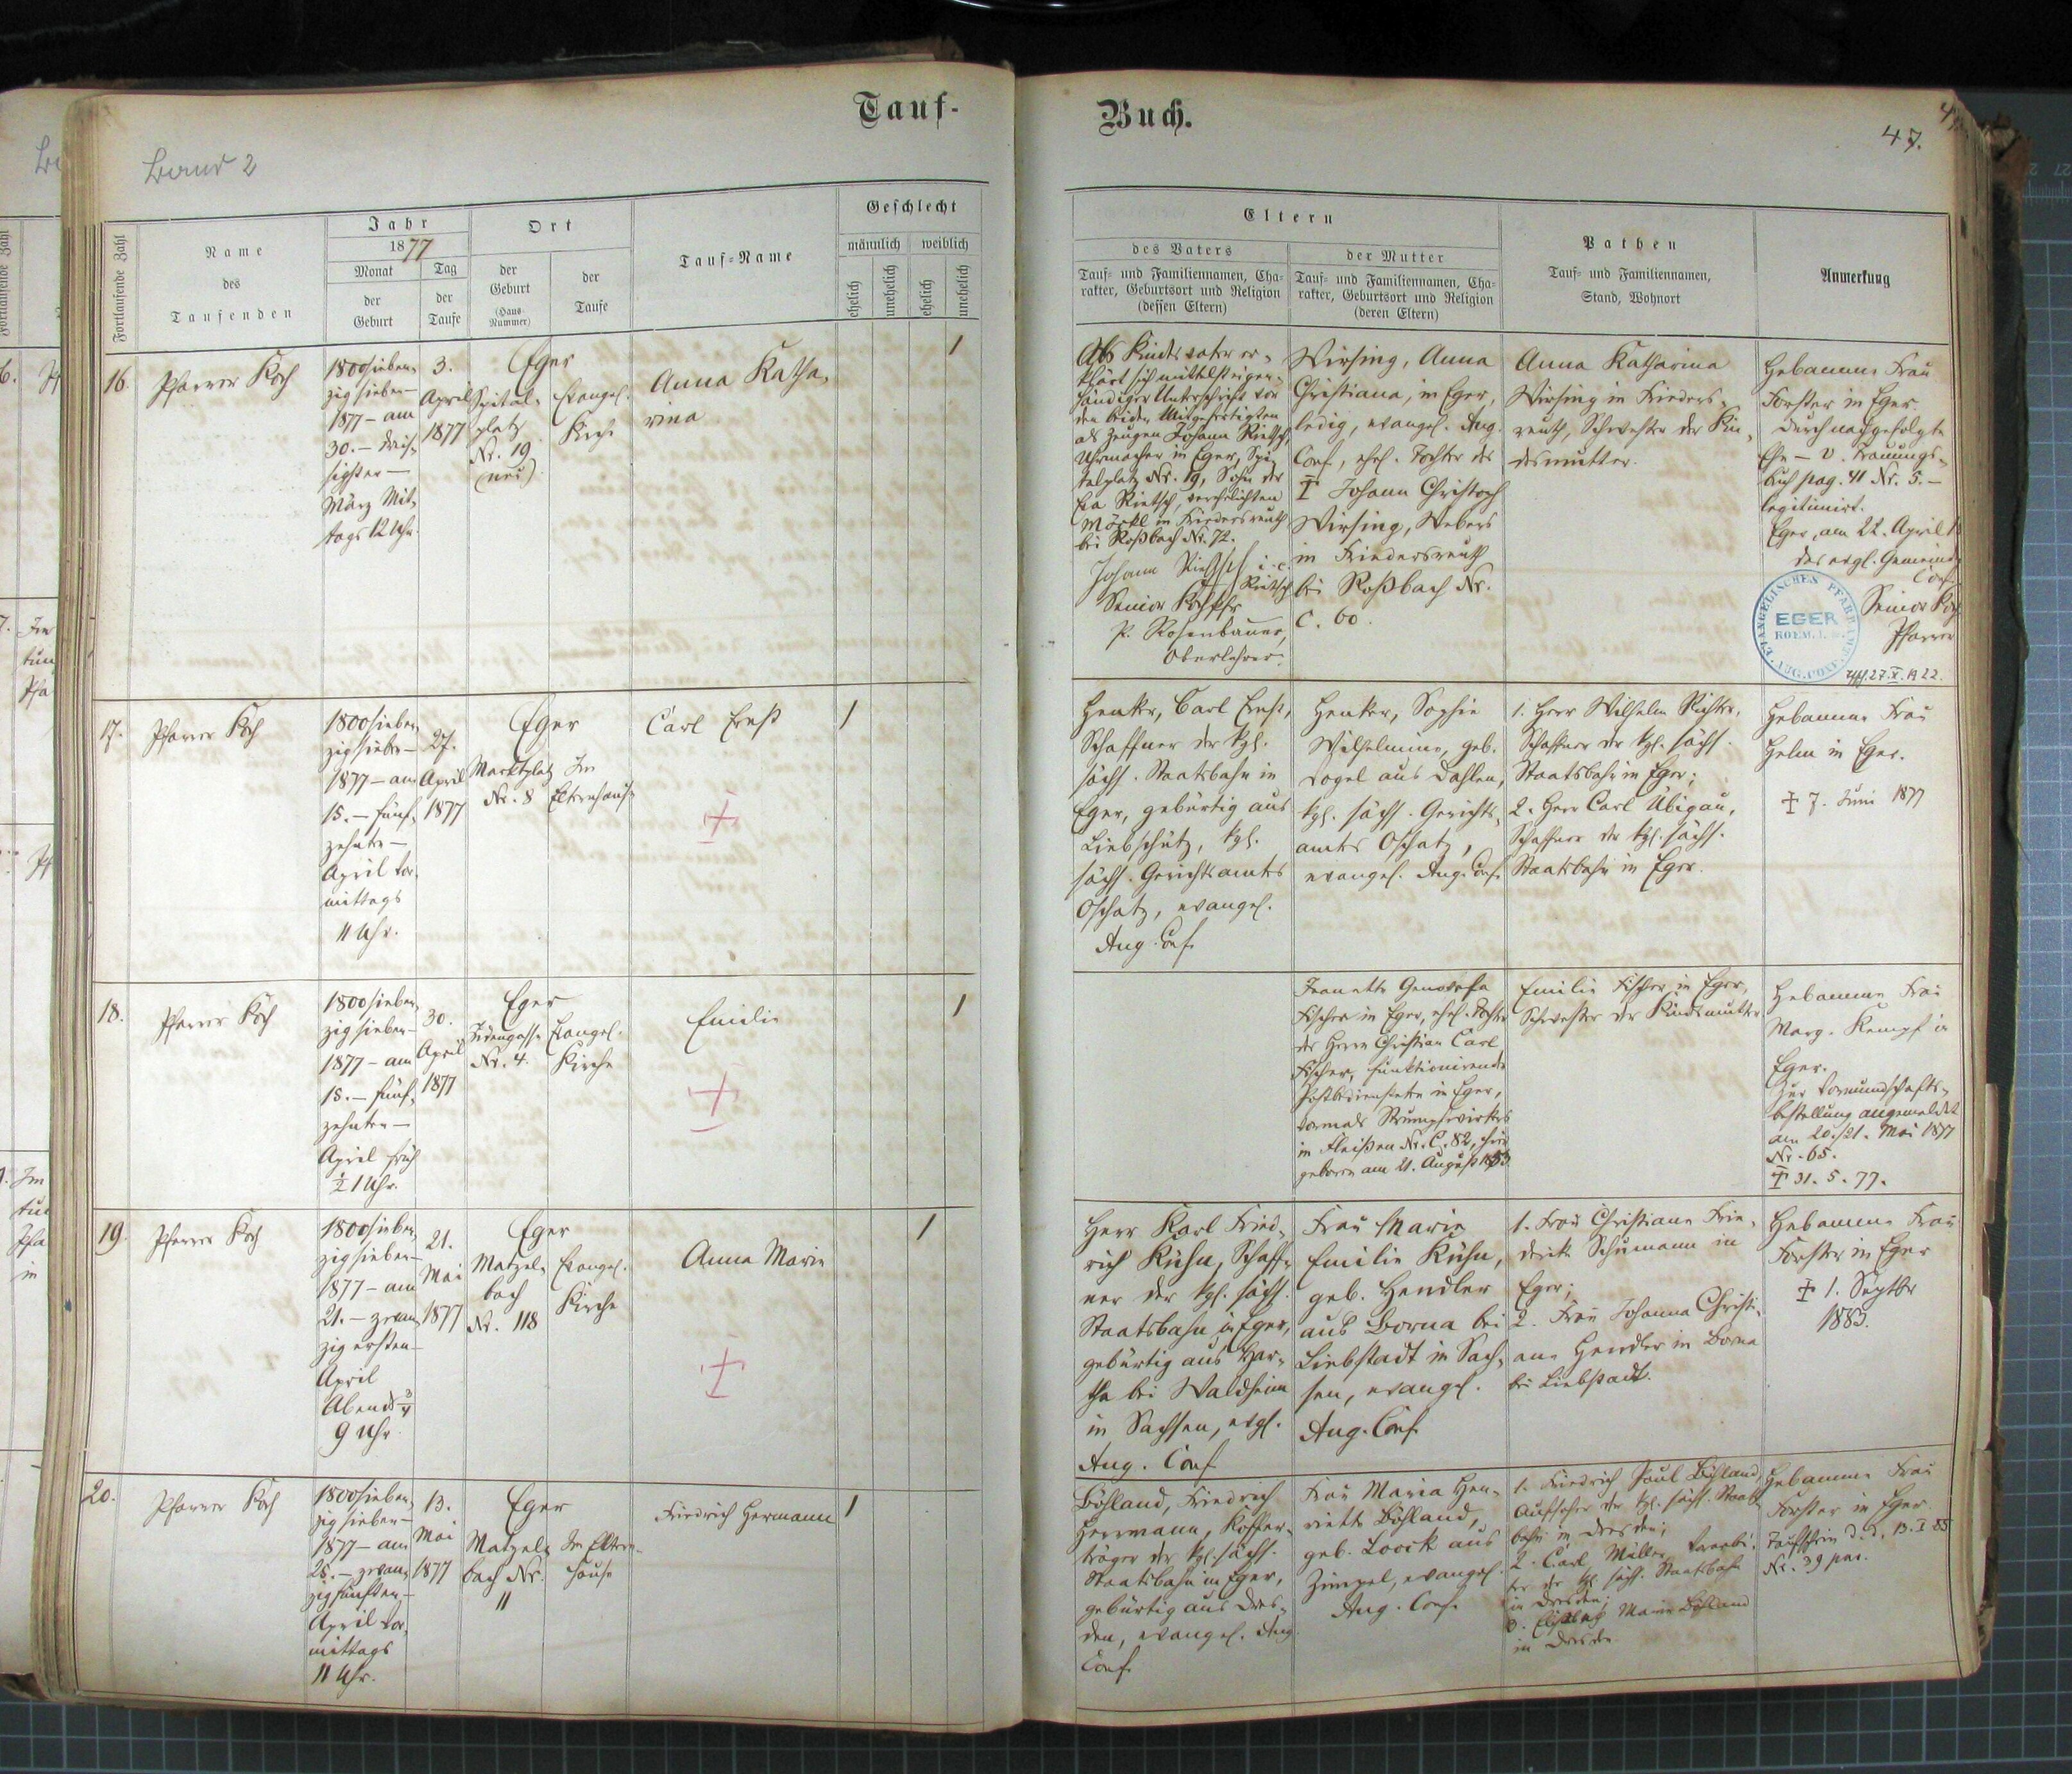 Tauf-
Buch.
47.
Band 2
Fortlaufende Zahl
Name
des
Taufenden
Jahr
1877
Monat
der
Geburt
Tag
der
Taufe
Ort
der
Geburt
(Haus-
Nummer)
der
Taufe
Tauf-Name
Geschlecht
männlich
weiblich
ehelich
unehelich
ehelich
unehelich
Eltern
des Vaters
Tauf- und Familiennamen, Cha-
rakter, Geburtsort und Religion
(dessen Eltern)
der Mutter
Tauf- und Familiennamen, Cha-
rakter, Geburtsort und Religion
(deren Eltern)
Pathen
Tauf- und Familiennamen,
Stand, Wohnort
Anmerkung
16.
Pfarrer Koch
1800sieben-
zigsieben-
1877 - am
30. - drei-
sigsten -
März Mit-
tags 12 Uhr.
3.
April
1877
Eger
Spital-
platz
Nr. 19
(neu)
Evangel.
Kirche
Anna Katha-
rina
1
Als Kindesvater er-
klärt sich mittelst eigen-
händiger Unterschrift vor
den beiden Mitgefertigten
als Zeugen Johann Rietsch,
Uhrmacher in Eger, Spi-
talplatz Nr. 19, Sohn der
Eva Rietsch, verehelichten
Möckl in Friedersreuth
bei Roßbach Nr. 72.
Johann Rietsch
Rietsch
Senior Koch Pfr
P. Rosenbauer,
Oberlehrer.
Wirsing, Anna
Christiana, in Eger,
ledig, evangel. Aug.
Conf., ehel. Tochter des
† Johann Christoph
Wirsing, Webers
in Friedersreuth
bei Roßbach Nr.
C. 60.
Anna Katharina
Wirsing in Frieders-
reuth, Schwester der Kin-
desmutter.
Hebamme Frau
Forster in Eger.
Durch nachgefolgte
Ehe - v. Trauungs-
buch pag. 41 Nr. 5. -
legitimirt.
Eger, am 22. April
der evgl. Gemeinde
Conf.
Senior Koch
Pfarrer
EVANGELISCHES PFARRAMT
EGER
AUG. CONF.
27.X.1922.
17.
Pfarrer Koch
1800sieben-
zigsieben-
1877 - am
15. - fünf-
zehnten -
April Vor-
mittags
11 Uhr.
27.
April
1877
Eger
Marktplatz
Nr. 8
Im
Elternhause
Carl Ernst
1
Henker, Carl Ernst,
Schaffner der kgl.
sächs. Staatsbahn in
Eger, gebürtig aus
Liebschütz, kgl.
sächs. Gerichtsamtes
Oschatz, evangel.
Aug. Conf.
Henker, Sophie
Wilhelmine, geb.
Vogel aus Dahlen,
kgl. sächs. Gerichts-
amtes Oschatz,
evangel. Aug. Conf.
1. Herr Wilhelm Richter,
Schaffner der kgl. sächs.
Staatsbahn in Eger;
2. Herr Carl Übigau,
Schaffner der kgl. sächs.
Staatsbahn in Eger.
Hebamme Frau
Helm in Eger.
† 7. Juni 1877
18.
Pfarrer Koch
1800sieben-
zigsieben-
1877 - am
15. - fünf-
zehnten -
April früh
½ 1 Uhr.
30.
April
1877
Eger
Judengasse
Nr. 4.
Evangel.
Kirche
Emilie
1
Jeanette Genovefa
Fischer in Eger, ehel. Tochter
des Herrn Christian Carl
Fischer, funktionirende
Postbediensteten in Eger,
vormals Strumpfwirkers
in Fleißen Nr. C. 82,
geboren am 21. August 1853
Emilie Fischer in Eger,
Schwester der Kindsmutter
Hebamme Frau
Marg. Kempf in
Eger.
Zur Vormundschafts-
bestellung angemeldet
am 20./21. Mai 1877
Nr. 65.
† 31. 5. 77.
19.
Pfarrer Koch
1800sieben-
zigsieben-
1877 - am
21. - zwan-
zigersten -
April
Abends ¾
9 Uhr
21.
Mai
1877
Eger
Matzel-
bach
Nr. 118
Evangel.
Kirche
Anna Marie
1
Herr Karl Fried-
rich Kühn, Schaff-
ner der kgl. sächs.
Staatsbahn in Eger,
gebürtig aus Har-
tha bei Waldheim
in Sachsen, evgl.
Aug. Conf
Frau Marie
Emilie Kühn,
geb. Hendler
aus Borna bei
Liebstadt in Sach-
sen, evangl.
Aug. Conf.
1. Frau Christiane Frie-
derike Schumann in
Eger;
2. Frau Johanna Christi-
ane Hendler in Borna
bei Liebstadt.
Hebamme Frau
Forster in Eger
† 1. Septbr
1883.
20.
Pfarrer Koch
1800sieben-
zigsieben-
1877 - am
25. - zwan-
zigfünften -
April Vor-
mittags
11 Uhr.
13.
Mai
1877
Eger
Matzel-
bach Nr.
11
Im Eltern-
hause
Friedrich Hermann
1
Böhland, Friedrich
Herrmann, Koffer-
träger der kgl. sächs.
Staatsbahn in Eger,
gebürtig aus Dres-
den, evangel. Aug.
Conf.
Frau Maria Hen-
riette Böhland,
geb. Loock aus
Zimpel, evangel.
Aug. Conf.
1. Friedrich Paul Böhland,
Aufseher der kgl. sächs. Staats-
bahn in Dresden;
2. Carl Müller, Vorarbei-
ter der kgl. sächs. Staatsbahn
in Dresden;
3. Marie Böhland
in Dresden.
Hebamme Frau
Forster in Eger.
Taufschein d. d. 13. I 85
Nr. 39